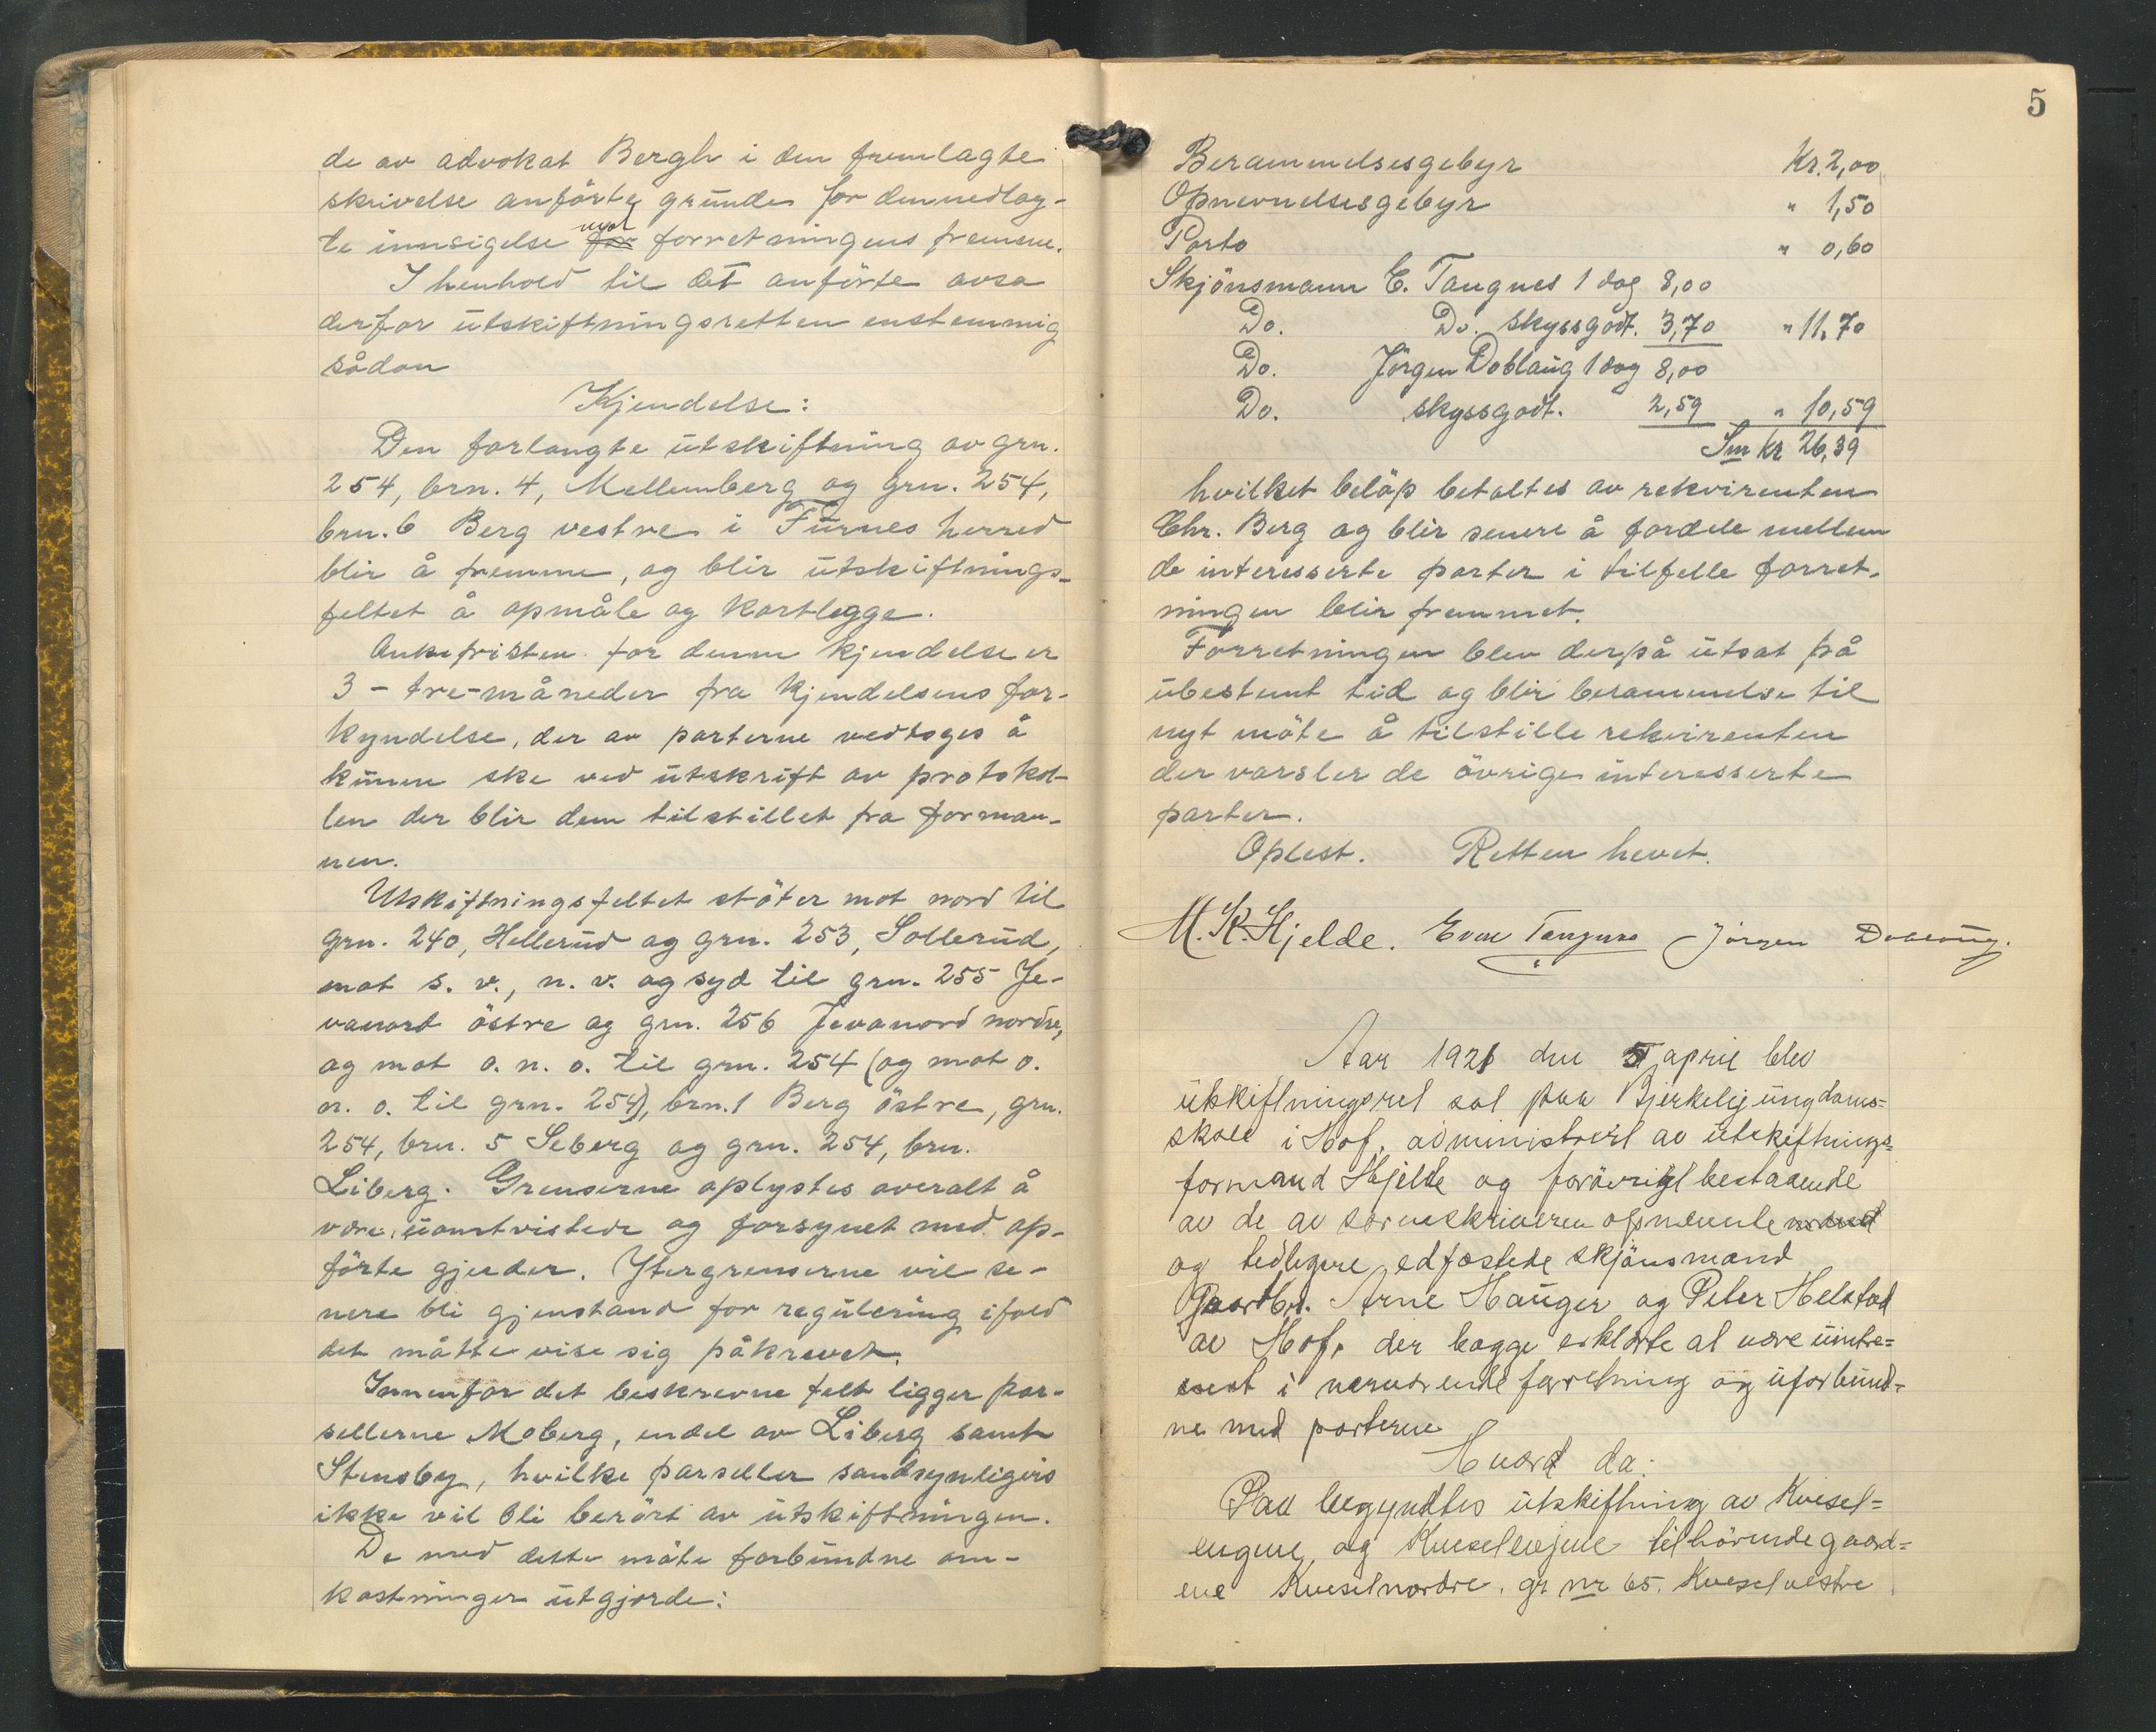 de av advokat Bergh i den fremlagte
skrivelse anförte grunde for den nedlag-
te innsigelse mot for forretningens fremme.
I henhold til det anförte avsa
derfor utskiftningsretten enstemmig
sådan
Kjendelse:
Den forlangte utskiftning av grn.
254, brn. 4, Mellumberg og grn. 254,
brn. 6 Berg vestre i Furnes herred
blir å fremme, og blir utskiftnings-
feltet å opmåle og kartlegge.
Ankefristen for denne kjendelse er
3 - tre-måneder fra kjendelsens for-
kyndelse, der av parterne vedtoges å
kunne ske ved utskrift av protokol-
len der blir dem tilstillet fra forman-
nen.
Utskiftningsfeltet stöter mot nord til
grn. 240, Hellerud og grn. 253, Sollerud,
mot s. v., n. v. og syd til grn. 255 Je-
vanord östre og grn. 256 Jevanord nordre,
og mot o. n. o. til grn. 254 (og mot o.
n. o. til grn. 254), brn. 1 Berg östre, grn.
254, brn. 5 Seberg og grn. 254, brn.
Liberg. Grenserne oplystes overalt å
være uomtvistede og forsynet med op-
förte gjerder. Ytergrenserne vil se-
nere bli gjenstand for regulering ifald
det måtte vise sig påkrevet.
Innenfor det beskrevne felt ligger par-
sellerne Moberg, endel av Liberg samt
Stensby, hvilke parseller sandsynligvis
ikke vil bli berört av utskiftningen.
De med dette möte forbundne om-
kostninger utgjorde:
5
Berammelsesgebyr Kr. 2,00
Opnevnelsesgebyr " 1,50
Porto " 0,60
Skjönsmann E. Tangnes 1 dag 8,00
Do. Do. skyssgodt. 3,70 " 11,70
Do. Jörgen Doblaug 1 dag 8,00
Do. skyssgodt. 2,59 " 10,59
Sm Kr 26,39
hvilket belöp betaltes av rekvirenten
Chr. Berg og blir senere å fordele mellem
de interesserte parter i tilfelle forret-
ningen blir fremmet.
Forretningen blev derpå utsat på
ubestemt tid og blir berammelse til
nyt möte å tilstille rekvirenten
der varsler de övrige interesserte
parter.
Oplest. Retten hevet.
M. K. Hjelde. Even Tangnes Jörgen Doblaug.
Aar 1921 den 5 april blev
utskiftningsret sat paa Bjerkelij ungdoms=
skole i Hof, administrert av utskiftnings=
formand Hjelde og forövrigt bestaaende
av de av sorenskriveren opnævnte
og tidligere edfæstede skjönsmænd
Gaardbr. Arne Hauger og Peter Helstad
av Hof, der begge erklærte at være uinte=
resert i nærværende forretning og uforbund=
ne med parterne
Hvord da:
Paa begyndtes utskiftning av Kvesel=
engene, og Kveselvejene tilhörende gaard=
ene Kvesel nordre, gr nr 65. Kvesel vestre